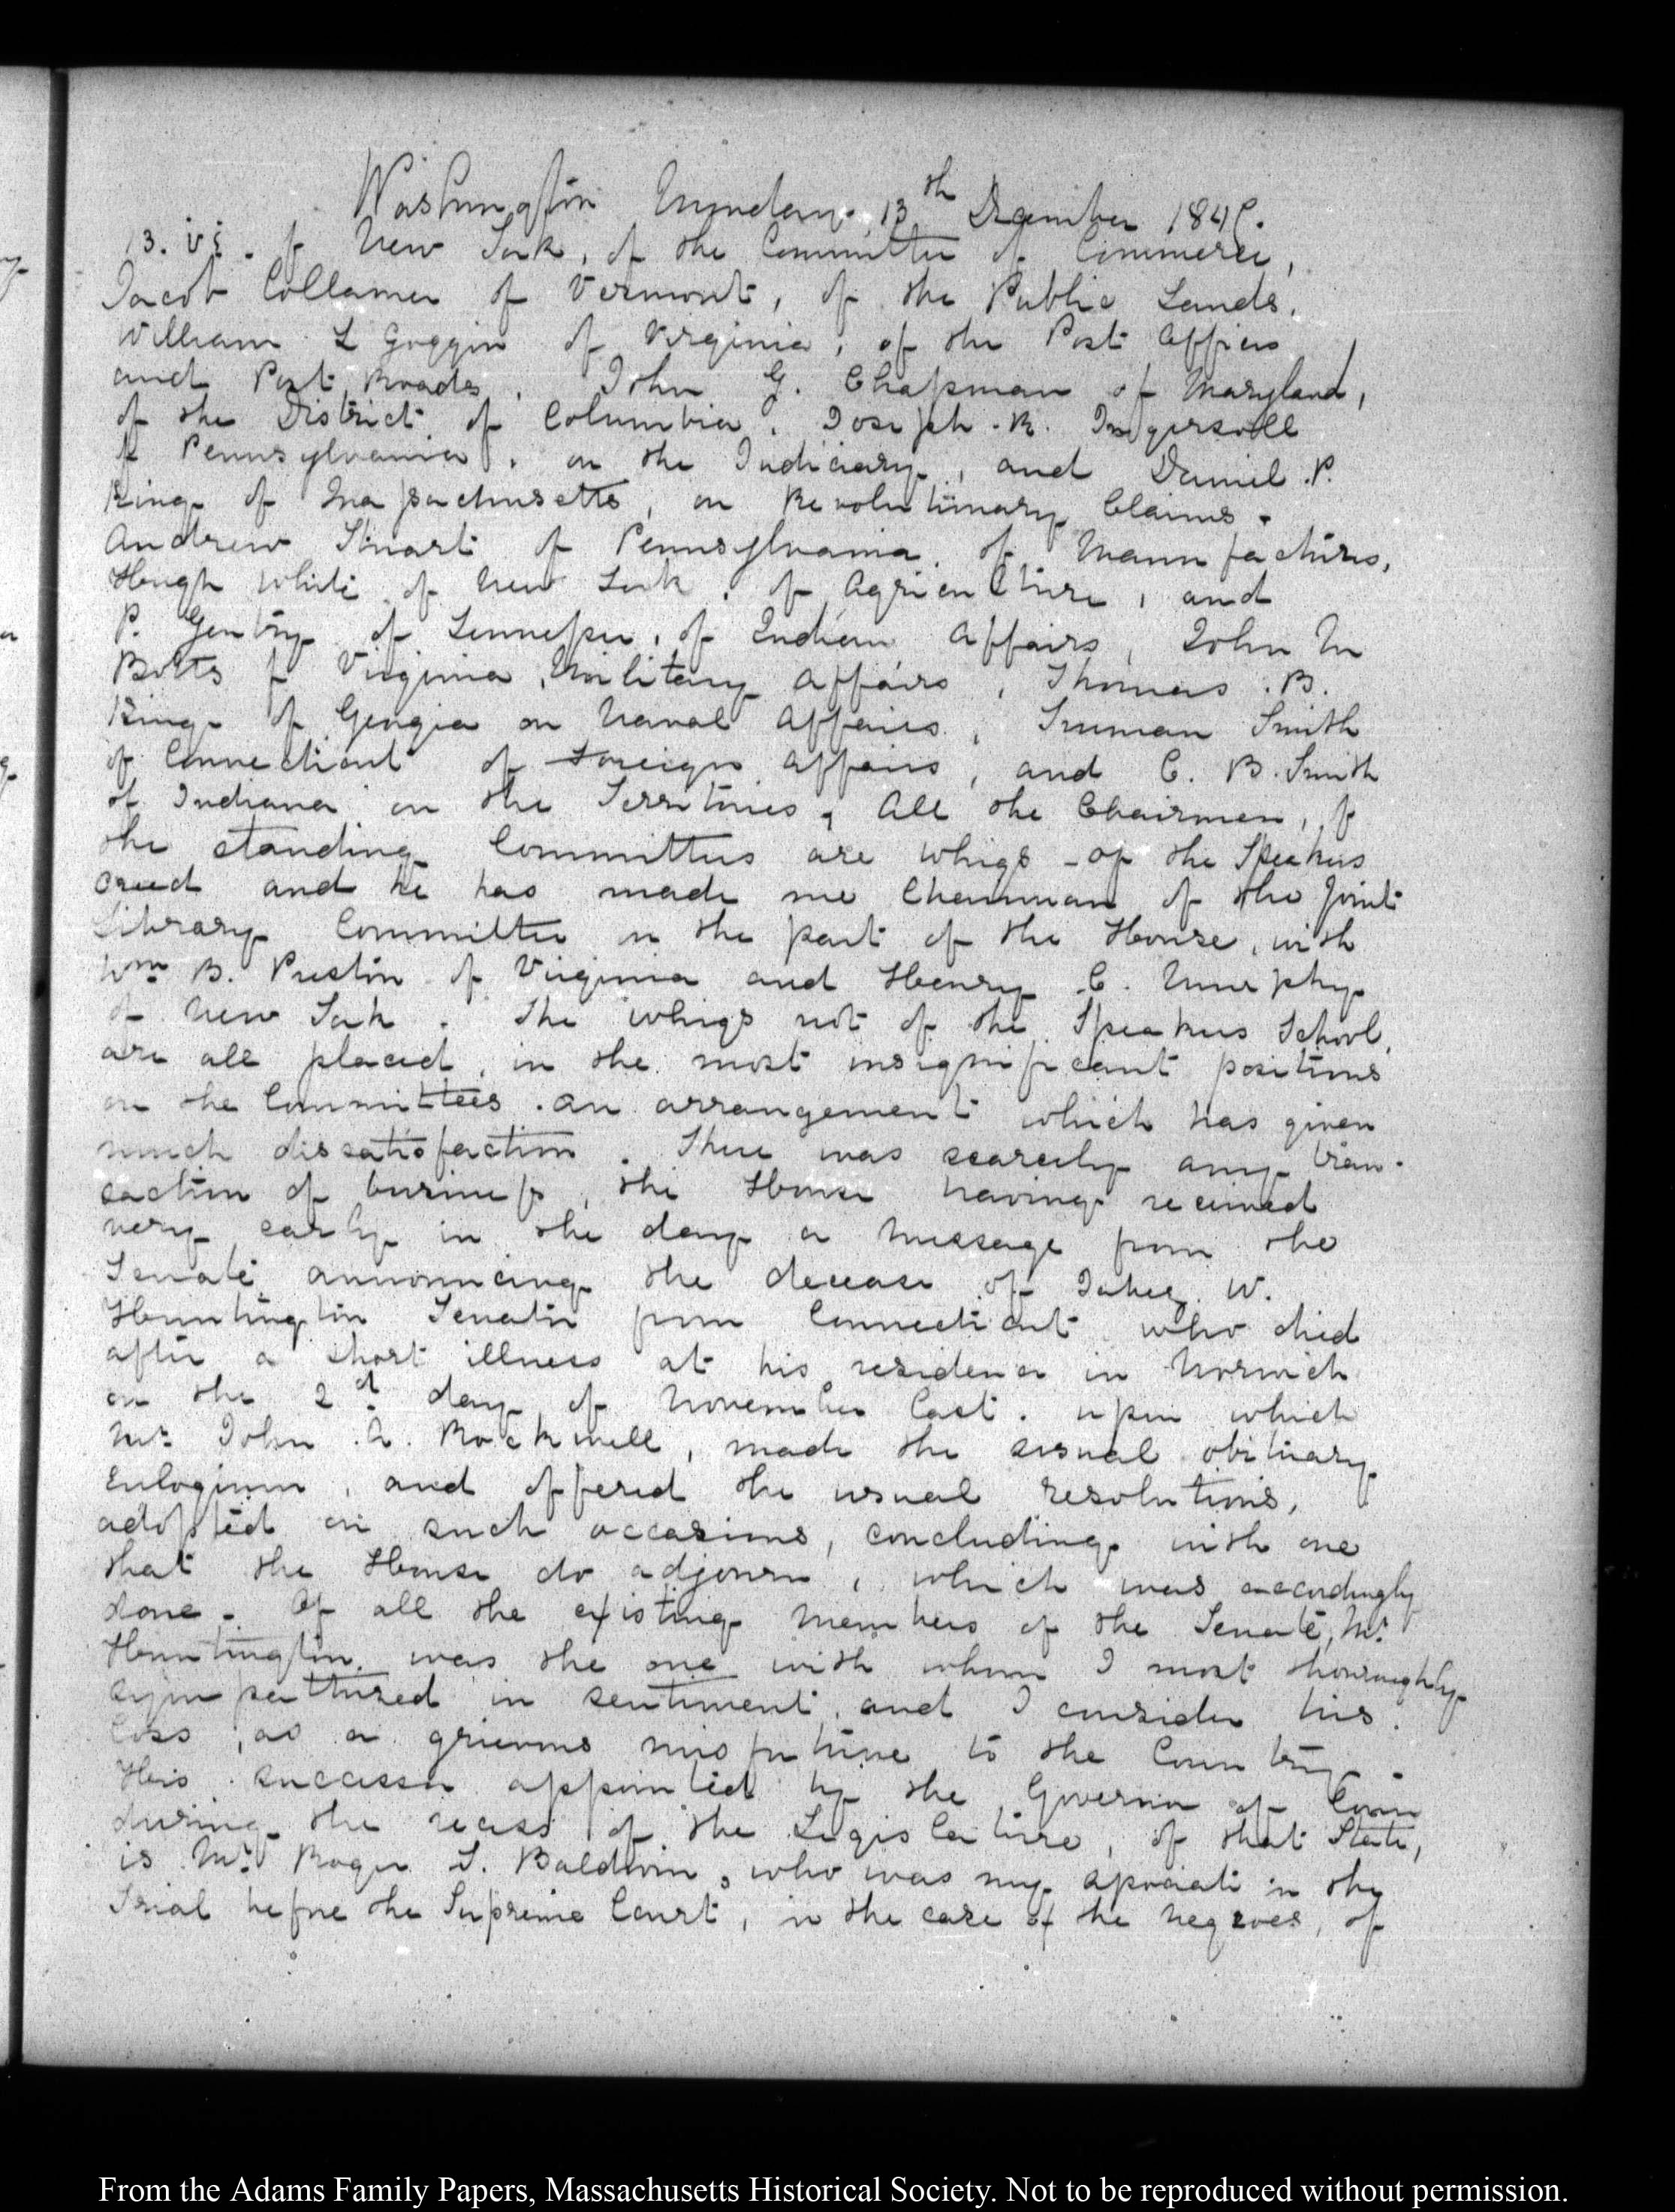 Washington Monday 13th December 1847.
13. VI. of New York, of the Committee of Commerce,
Jacob Collamer of Vermont, of the Public Lands.
William L Goggin of Virginia, of the Post Offices
and Post Roads. John G. Chapman of Maryland,
of the District of Columbia. Joseph R. Ingersoll
of Pennsylvania, on the Judiciary, and Daniel P.
King of Massachusetts, on Revolutionary Claims.
Andrew Stuart of Pennsylvania of Manufactures,
Hugh White of New York, of Agriculture, and
P. Gentry of Tennessee, of Indian Affairs, John M
Botts of Virginia, Military Affairs, Thomas B.
King of Georgia on Naval Affairs, Truman Smith
of Connecticut of Foreign Affairs, and C. B. Smith
of Indiana on the Territories, All the Chairmen, of
the standing Committees are Whigs - of the Speakers
creed and he has made me Chairman of the joint
Library Committee on the part of the House, with
Wm B. Preston of Virginia and Henry C. Murphy
of New York. The Whigs not of the Speakers School,
are all placed, in the most insignificant positions
on the Committees. an arrangement which has given
much dissatisfaction. There was scarcely any tran-
saction of business, the House having received
very early in the day a message from the
Senate announcing the decease of Jabez W.
Huntington Senator from Connecticut who died
after a short illness at his residence in Norwich
on the 2d day of November last. upon which
Mr John A. Rockwell, made the usual obituary
Eulogium, and offered the usual resolutions,
adopted on such occasions, concluding with one
that the House do adjourn, which was accordingly
done. Of all the existing members of the Senate, Mr
Huntington was the one with whom I most thoroughly
sympathized in sentiment, and I consider his
loss, as a grievous misfortune to the Country.
His successor appointed by the Governor of Conn
during the recess of the Legislature, of that State,
is Mr Roger S. Baldwin, who was my associate in the
Trial before the Supreme Court, in the case of the negroes, of
From the Adams Family Papers, Massachusetts Historical Society. Not to be reproduced without permission.